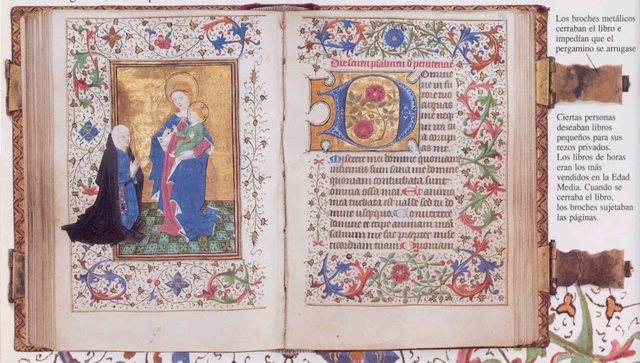 Los broches metálicos
cerraban el libro e
impedían que el
pergamino se arrugase
Ciertas personas
deseaban libros
pequeños para sus
rezos privados.
Los libros de horas
eran los más
vendidos en la Edad
Media. Cuando se
cerraba el libro,
los broches sujetaban
las páginas.
D omine
ne in fu
rore tuo
arguas
me
in ira
Miserere mei domine quoniam
infirmus sum sana me domine
quoniam conturbata sunt
omnia ossa mea Et anima
mea turbata est valde sed tu do
mine Convertere
domine et eripe animam meam
salvum me fac propter mise
ricordiam tuam Quoniam